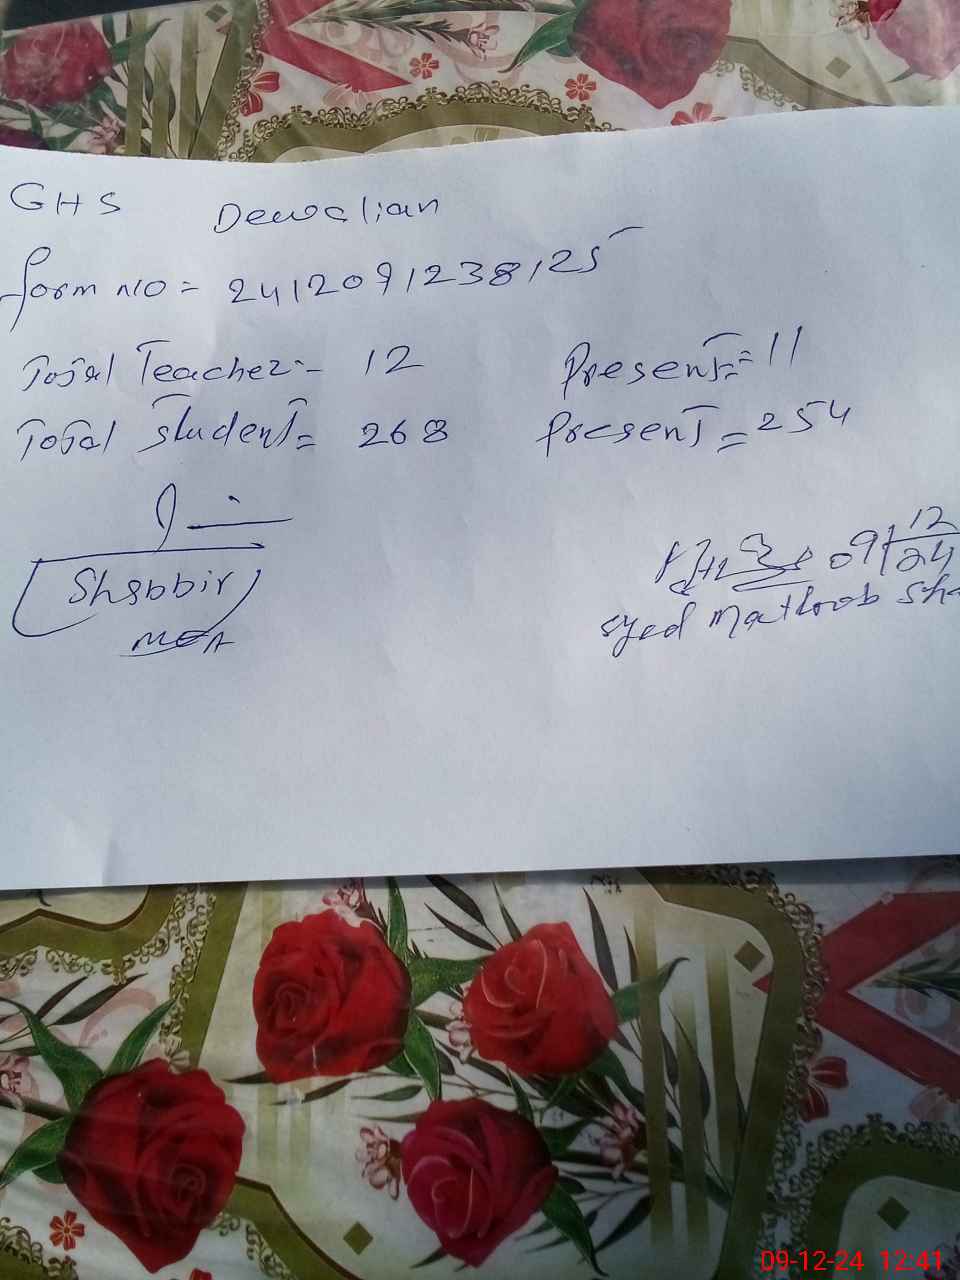 GHS Dewalian
form no = 2412091238125
Total Teacher:- 12 Present = 11
Total Student = 268 Present = 254
Shabbir
MEA
09/12/24
Syed Matloob
09-12-24 12:41